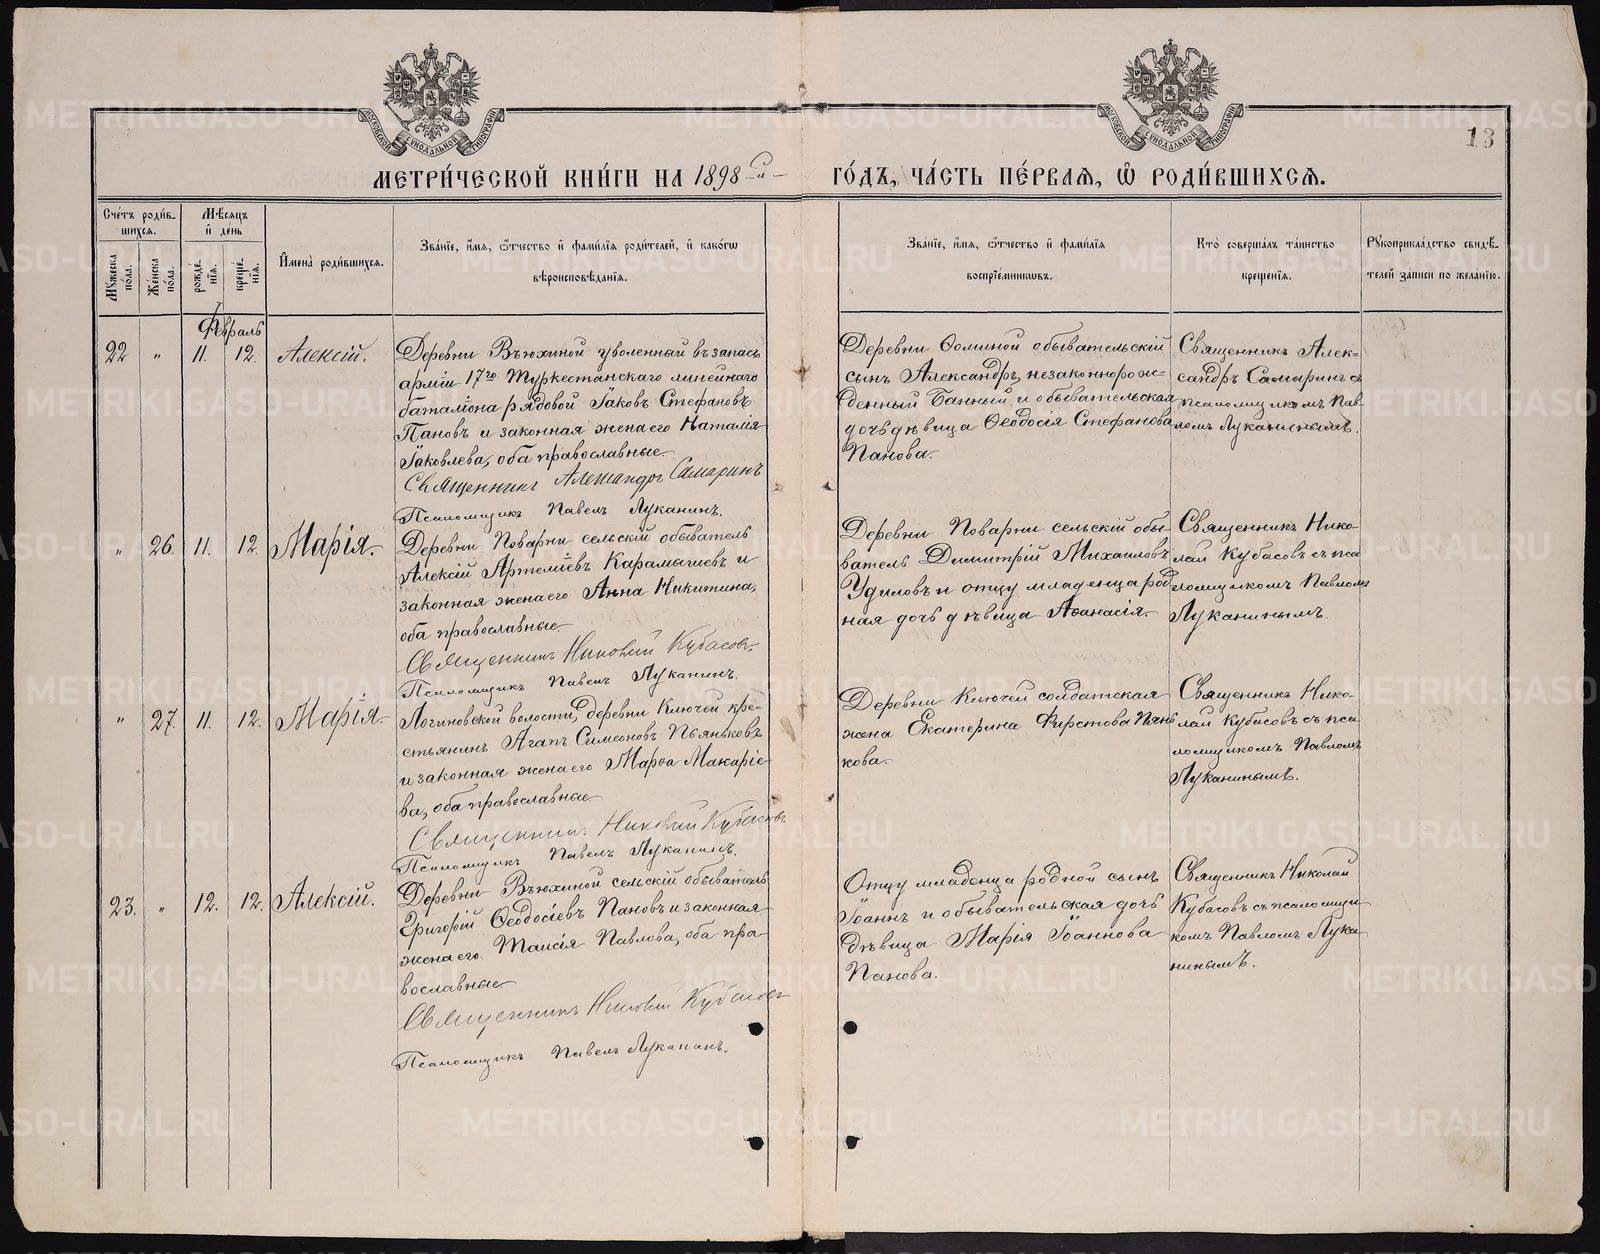 МЕТРИ́ЧЕСКОЙ КНИ́ГИ НА 1898-й ГО́ДЪ, ЧА́СТЬ ПЕ́РВАЯ, Ѽ РОДИ́ВШИХСЯ.
13
МОСКОВСКОЙ СѴНОДАЛЬНОЙ ТИПОГРАФІИ
МОСКОВСКОЙ СѴНОДАЛЬНОЙ ТИПОГРАФІИ
Сче́тъ роди́в-
шихся.
Мꙋ́жеска по́ла.
Же́нска по́ла.
Мѣ́сяцъ и҆ де́нь
рожде́-нїѧ.
креще́-нїѧ.
И҆мена̀ роди́вшихся.
Зва́нїе, и҆́мя, ѻ҆́тчество и҆ фами́лїя роди́телей, и҆ како́гѡ
вѣроисповѣ́данїя.
Зва́нїе, и҆́мя, ѻ҆́тчество и҆ фами́лїя
воспрїе́мникѡвъ.
Кто̀ соверша́лъ та́инство
креще́нїя.
Рꙋкоприкла́дство свидѣ́-
телей за́писи по жела́нїю.
Февраль
22 " 11. 12. Алексій.
Деревни Въюхиной уволенный въ запасъ
арміи 17го Туркестанскаго линейнаго
баталіона рядовой Іаковъ Стефановъ
Пановъ и законная жена его Наталія
Іаковлева, оба православные.
Священникъ Александръ Самаринъ
Псаломщикъ Павелъ Луканинъ.
Деревни Ѳоминой обывательскій
сынъ Александръ, незаконнорож-
денный Банный и обывательская
дочь дѣвица Ѳеодосія Стефанова
Панова.
Священникъ Алек-
сандръ Самаринъ съ
псаломщикомъ Пав-
ломъ Луканинымъ.
" 26. 11. 12. Марія.
Деревни Поварни сельскій обыватель
Алексій Артеміевъ Карамышевъ и
законная жена его Анна Никитина,
оба православные.
Священникъ Николай Кубасовъ.
Псаломщикъ Павелъ Луканинъ.
Деревни Поварни сельскій обы-
ватель Димитрій Михаиловъ
Удиловъ и отцу младенца род-
ная дочь дѣвица Аѳанасія.
Священникъ Нико-
лай Кубасовъ съ пса
ломщикомъ Павломъ
Луканинымъ.
" 27. 11. 12. Марія.
Логиновской волости, деревни Ключей кре-
стьянинъ Агапъ Симеоновъ Пьянковъ
и законная жена его Марѳа Макаріе-
ва, оба православные.
Священникъ Николай Кубасовъ
Псаломщикъ Павелъ Луканинъ.
Деревни Ключей солдатская
жена Екатерина Фирстова Пьян
кова.
Священникъ Нико-
лай Кубасовъ съ пса
ломщикомъ Павломъ
Луканинымъ.
23. " 12. 12. Алексій.
Деревни Въюхиной сельскій обыватель
Григорій Ѳеодосіевъ Пановъ и законная
жена его Таисія Павлова, оба пра-
вославные
Священникъ Николай Кубасовъ
Псаломщикъ Павелъ Луканинъ.
Отцу младенца родной сынъ
Іоаннъ и обывательская дочь
дѣвица Марія Іоаннова
Панова.
Священникъ Николай
Кубасовъ съ псаломщи
комъ Павломъ Лука
нинымъ.
METRIKI.GASO-URAL.RU